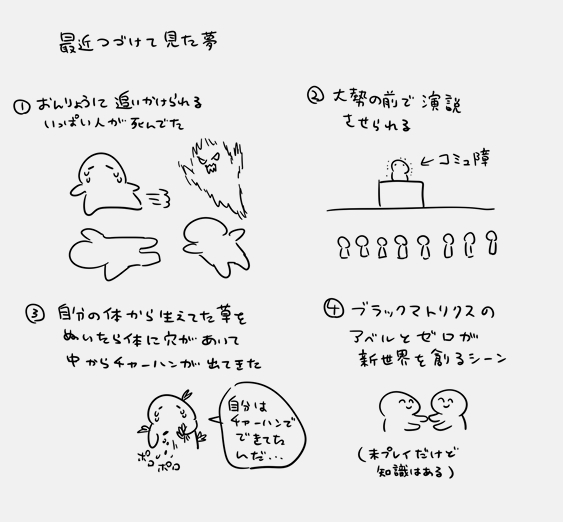 最近つづけて見た夢
① おんりょうに追いかけられる
いっぱい人が死んでた
② 大勢の前で演説
させられる
←コミュ障
③ 自分の体から生えてた草を
ぬいたら体に穴があいて
中からチャーハンが出てきた
自分は
チャーハンで
できてた
んだ...
ポロ
ポロ
④ ブラックマトリクスの
アベルとゼロが
新世界を創るシーン
(未プレイだけど
知識はある)